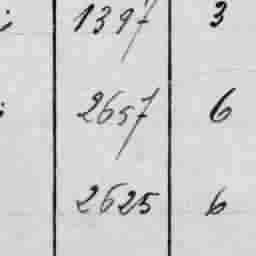 1397 3
2657 6
2625 6